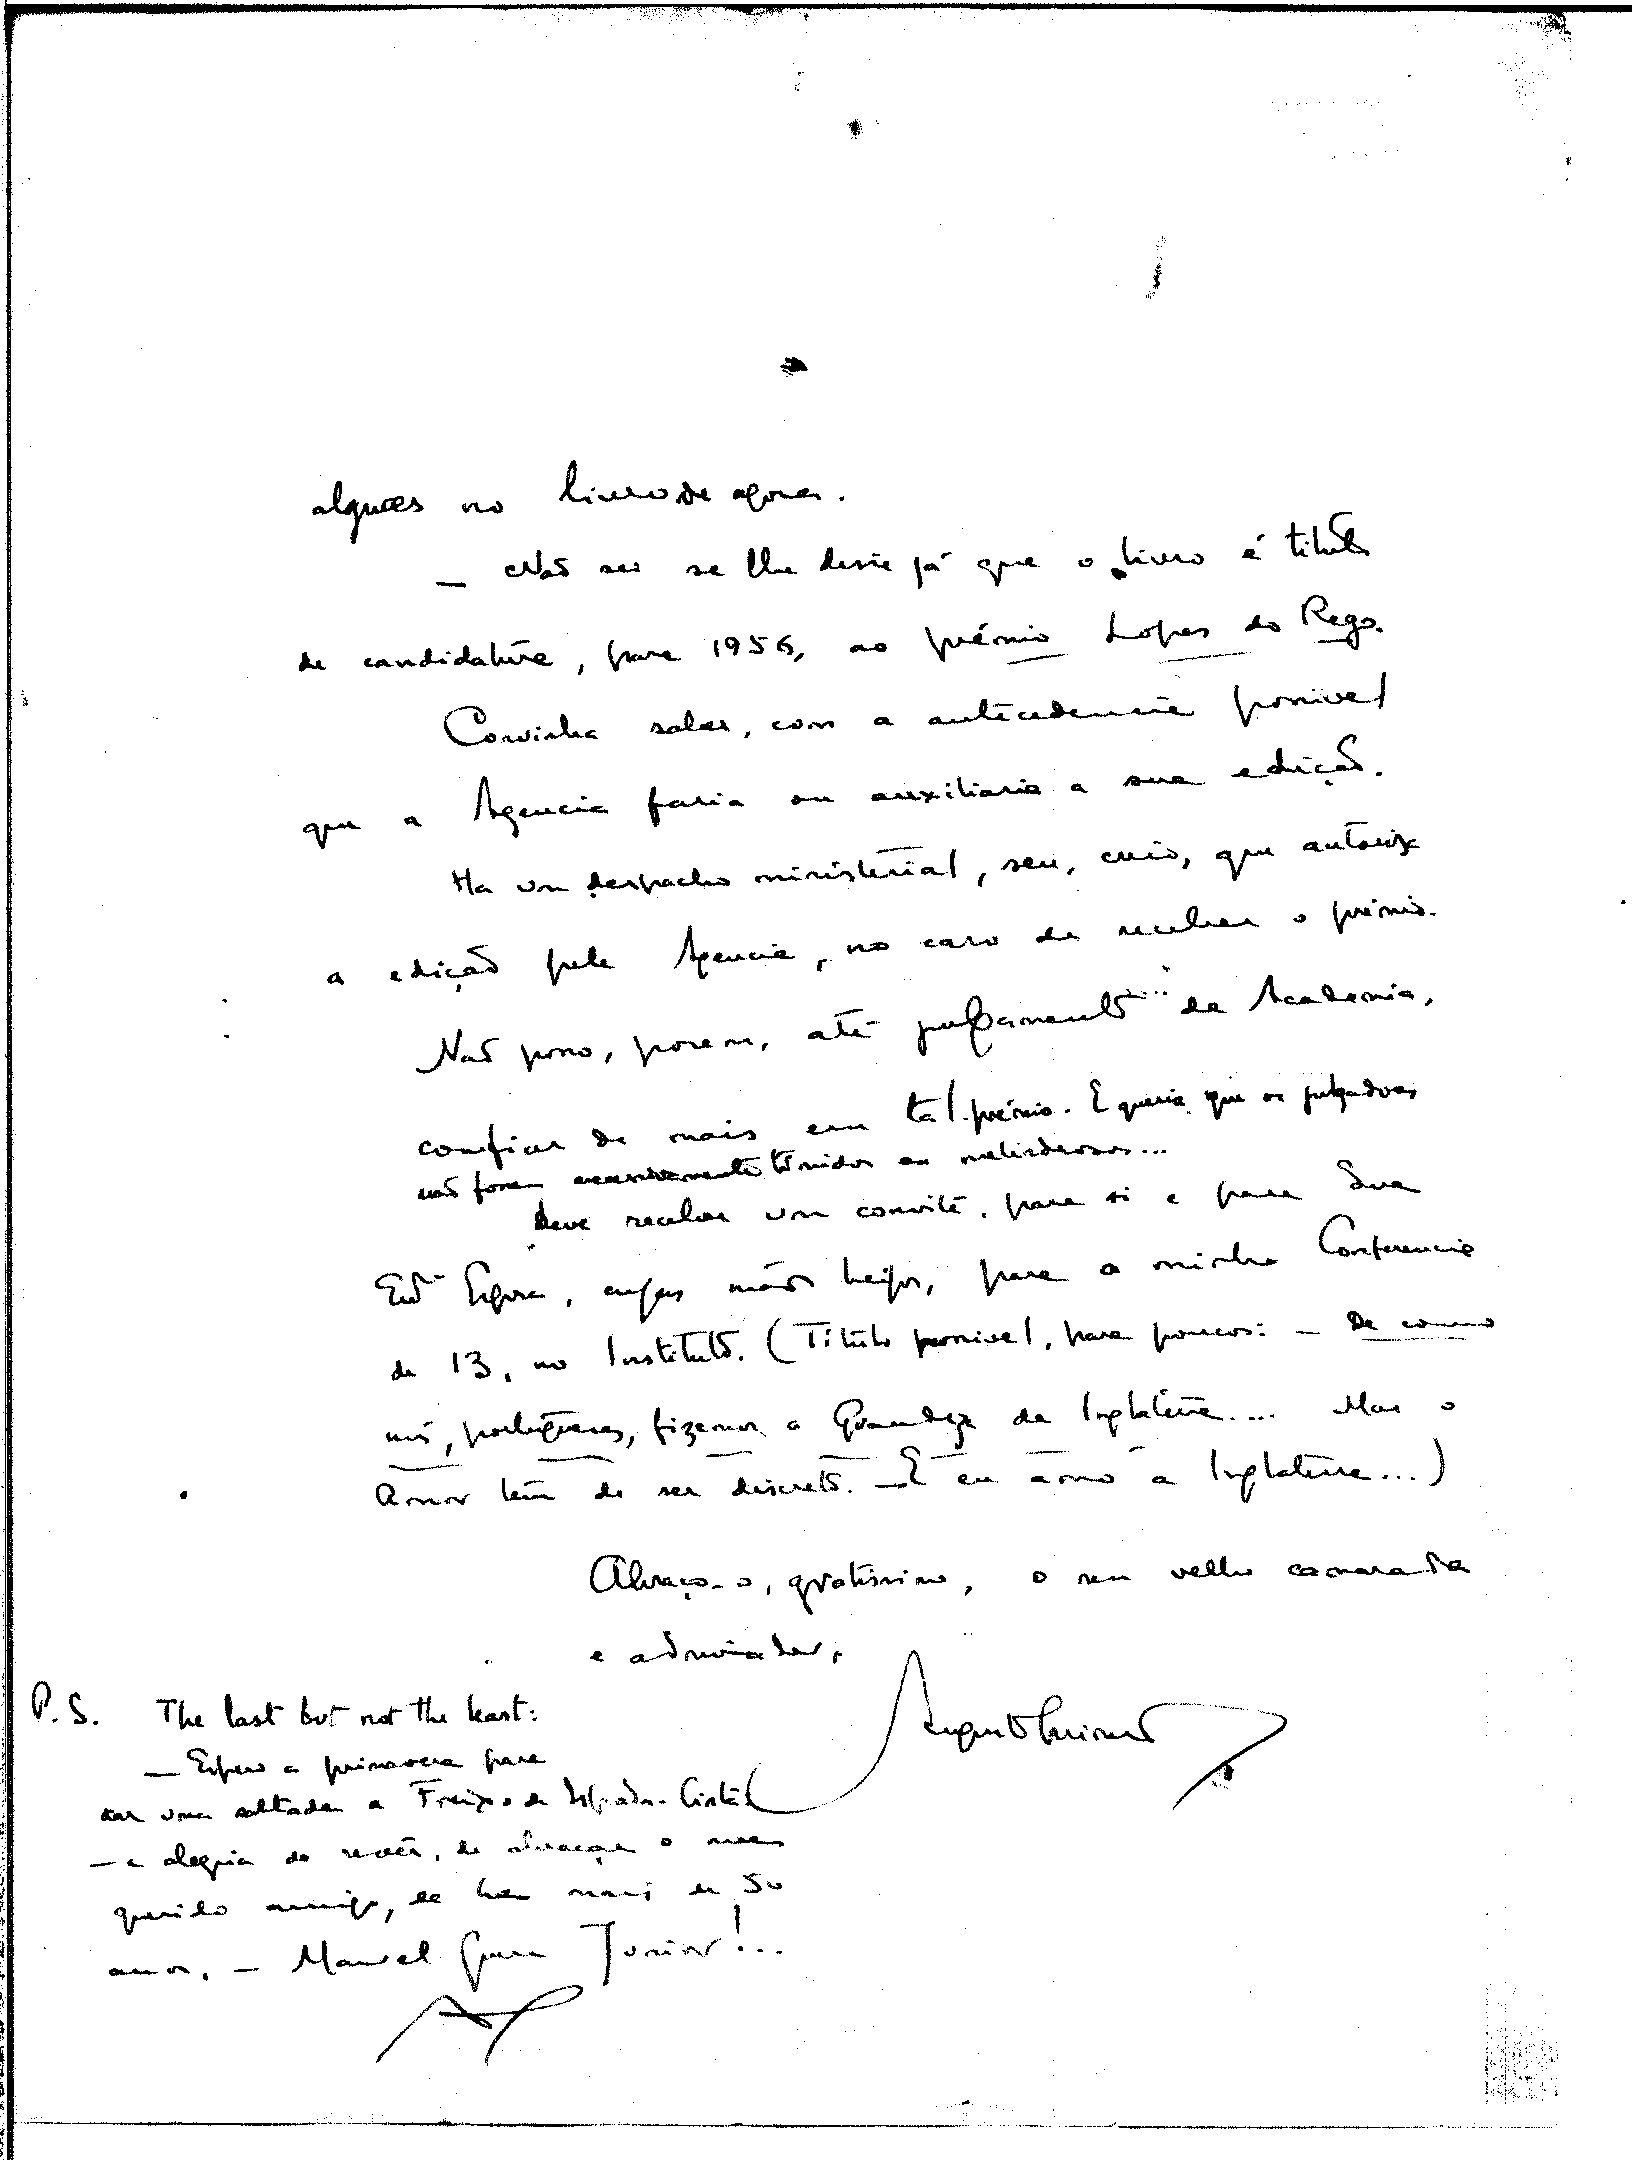 algures no livro de agora.
— Não sei se lhe disse já que o livro é título
de candidatura, para 1956, ao prémio Lopes do Rego.
Convinha saber, com a antecedencia possivel
que a Agencia faria ou auxiliaria a sua edição.
Ha um despacho ministerial, seu, creio, que autoriza
a edição pela Agencia, no caso de receber o prémio.
Não posso, porem, até julgamento da Academia,
confiar de mais em tal prémio. E queria que os julgadores
não fossem excessivamente timidos ou melindrosos...
Deve receber um convite, para si e para Sua
Esposa, cujas mãos beijo, para a minha Conferencia
de 13, no Instituto. (Titulo possivel, para poucos: — De como
nós, portugueses, fizemos a Grandeza da Inglaterra.... Mas o
Amor tem de ser discreto. — E eu amo a Inglaterra...)
Abraço-o, gratissimo, o seu velho camarada
e admirador,
P.S. The last but not the least:
— Espero a primavera para
dar uma saltada a Freixo-de-Espada-Cinta
— a alegria de rever, de abraçar o meu
querido amigo, de ha mais de 50
anos, — Manuel Junior!...